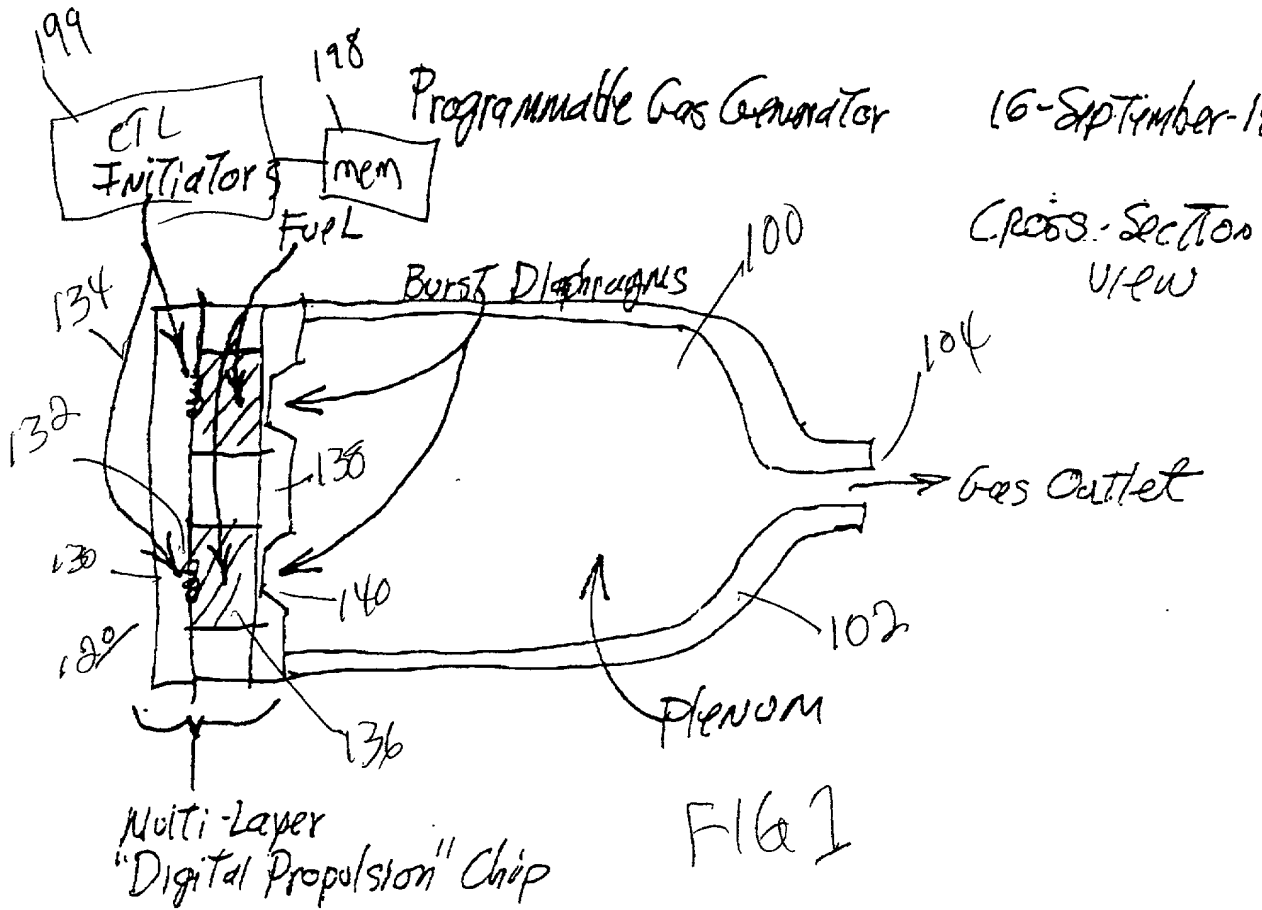 199
198
Programmable Gas Generator
16-September-19
CTL
Initiators
mem
Fuel
Cross-Section
View
100
Burst Diaphragms
134
104
132
138
Gas Outlet
130
140
120
102
Plenum
136
Multi-Layer
"Digital Propulsion" Chip
FIG 1